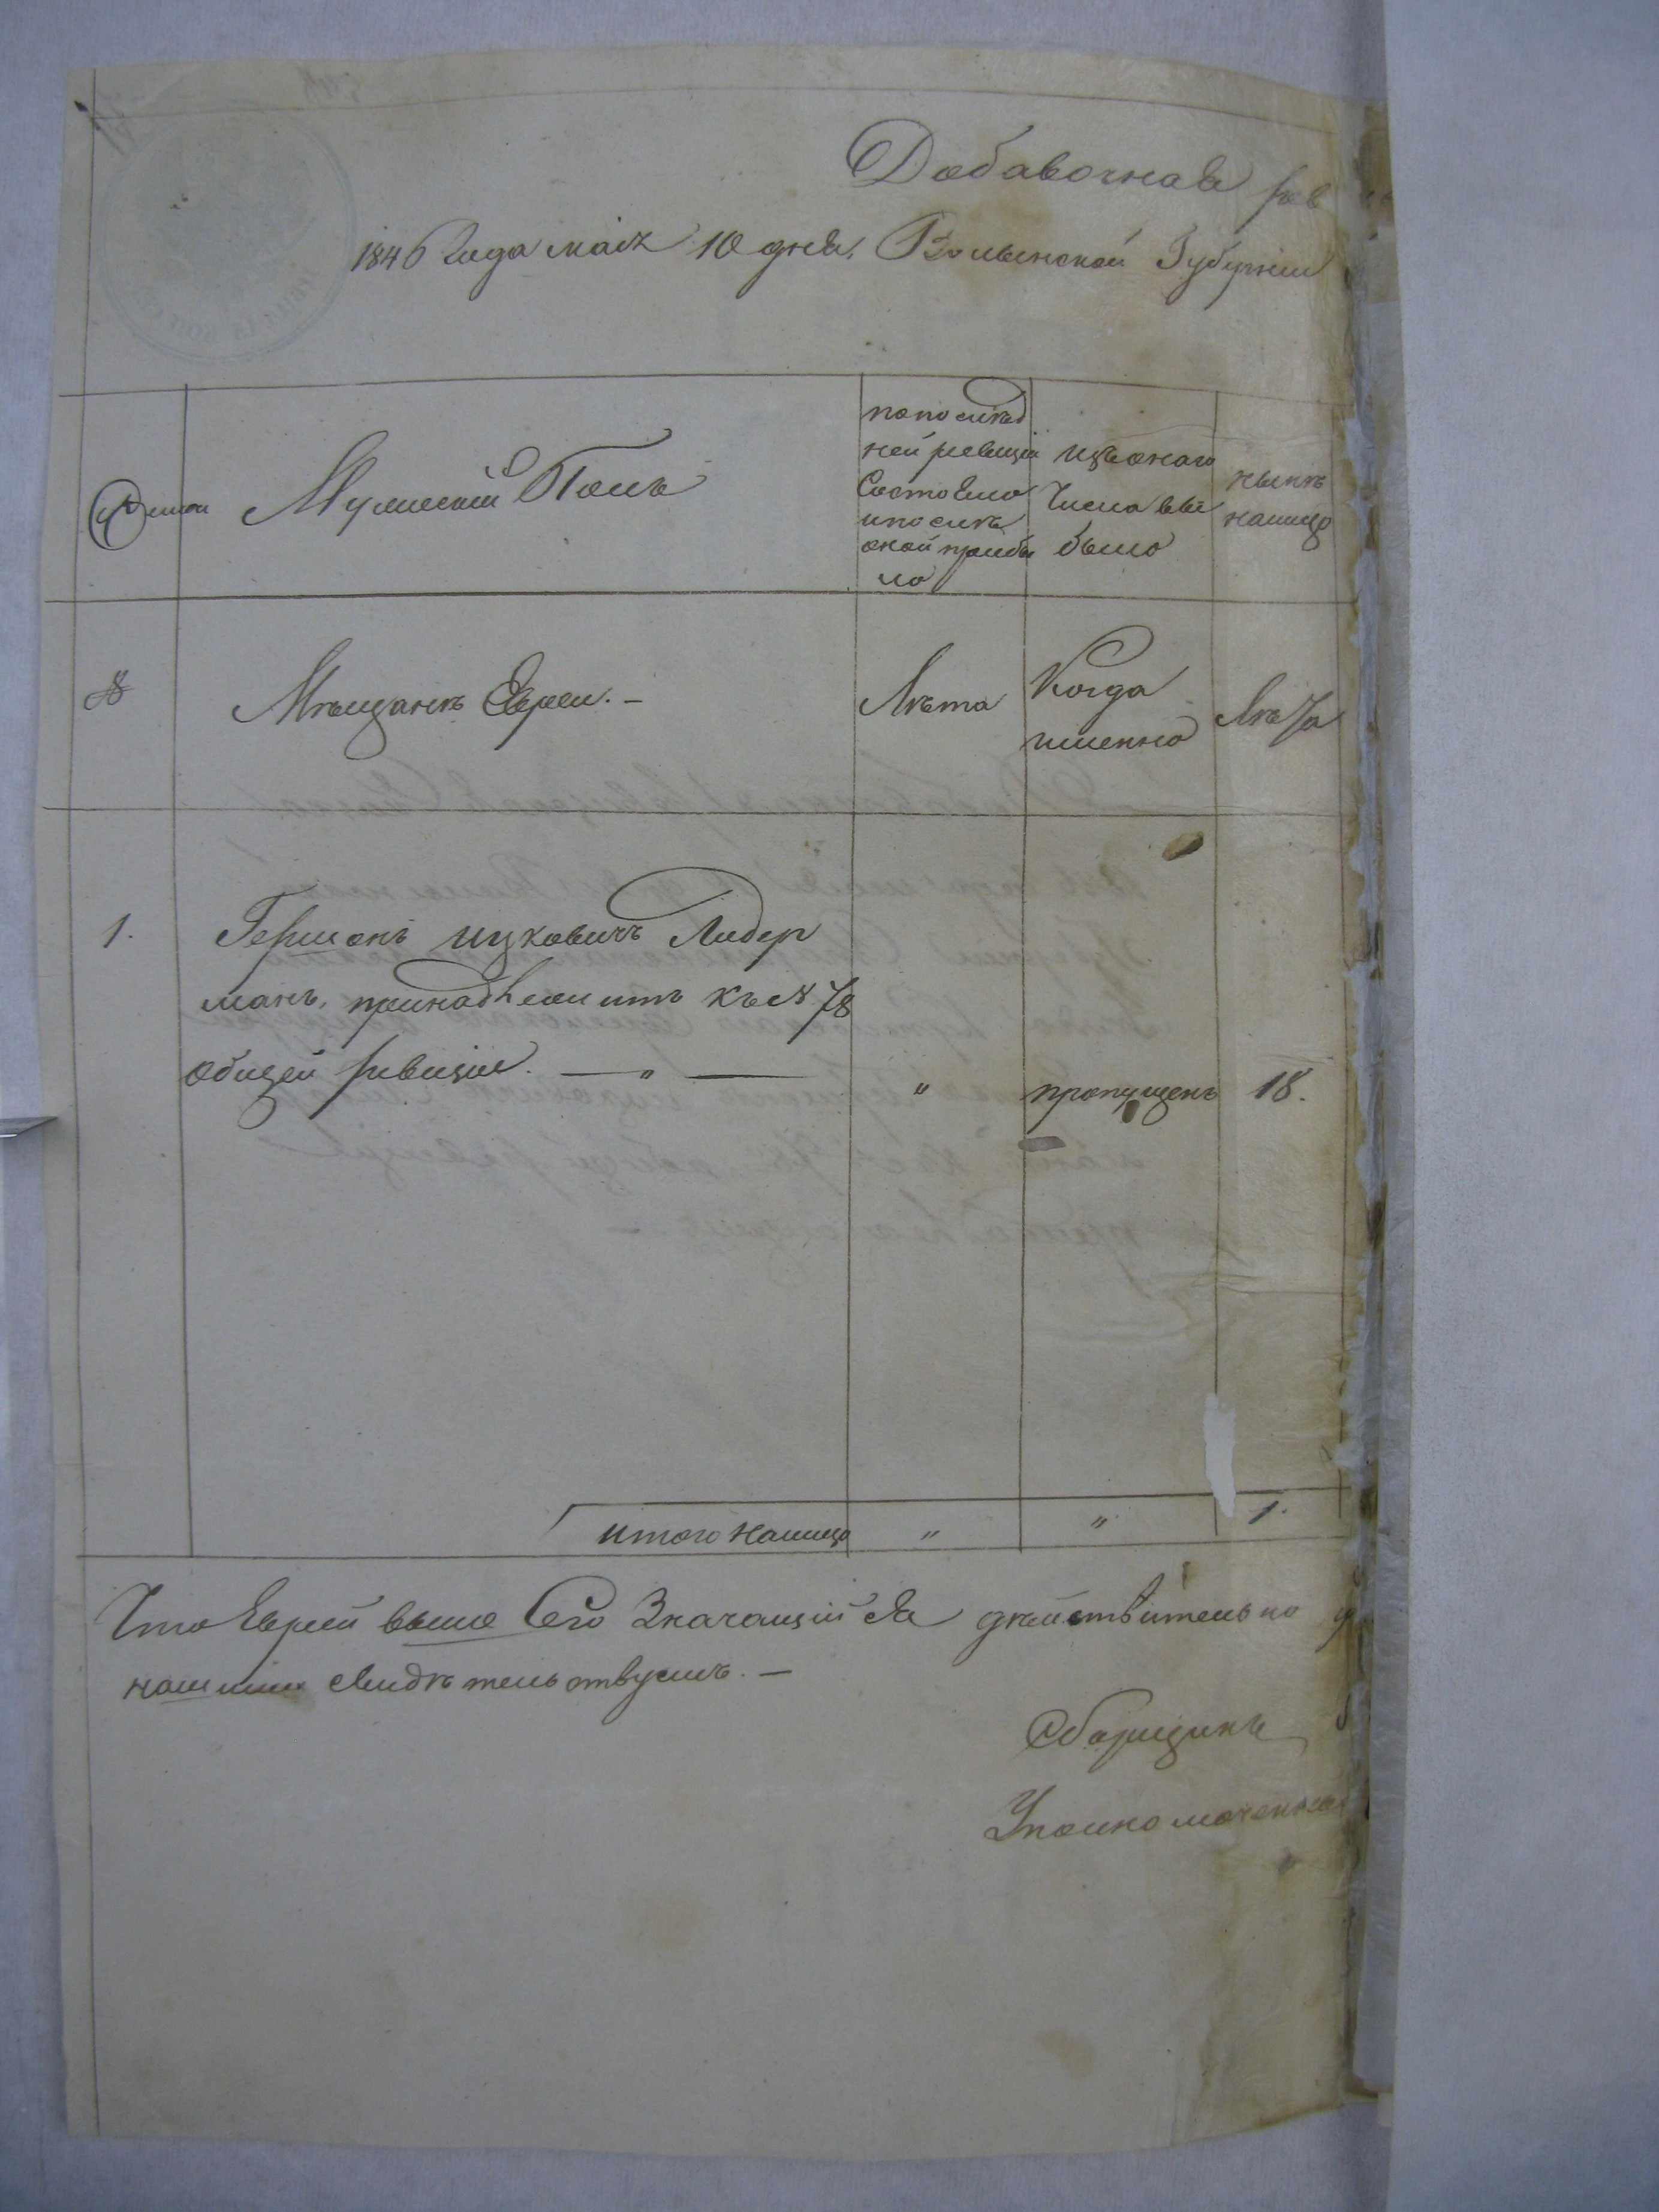 Добавочная рев
1846 Года маія 10 дня, Волынской Губерніи
Мужескій Полъ
попослѣд
ней ревизіи
Состояло
ипослѣ
оной прибы
ло
изъонаго
Числа вы
было
нынѣ
налицо
№
Мѣщанѣ Евреи. –
Лѣта
Когда
именно
Лѣта
1.
Гершонъ Ицковичъ Лидер
манъ, принадлежитъ къ № 78
общей ревизіи. — „ —
„
пропущенъ
18.
Итого налицо
„
„
1.
Что Еврей выше Сего Значащійся дѣйствительно
свидѣтельствуемъ. –
Сборщикъ
Уполномоченные